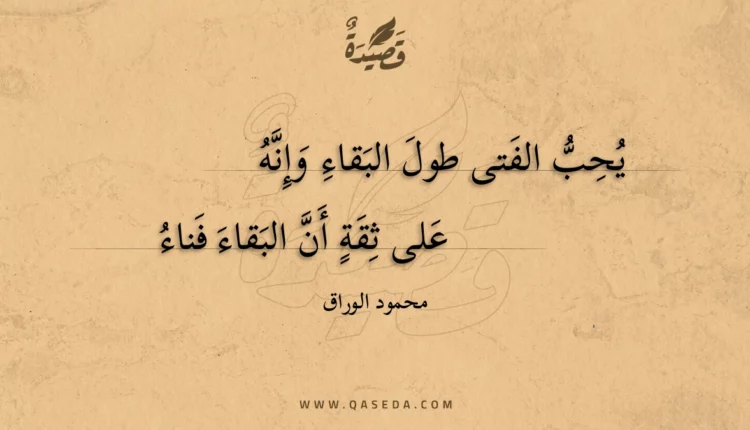 قَصِيدَةٌ
يُحِبُّ الفَتى طولَ البَقاءِ وَإِنَّهُ
عَلى ثِقَةٍ أَنَّ البَقاءَ فَناءُ
محمود الوراق
WWW.QASEDA.COM